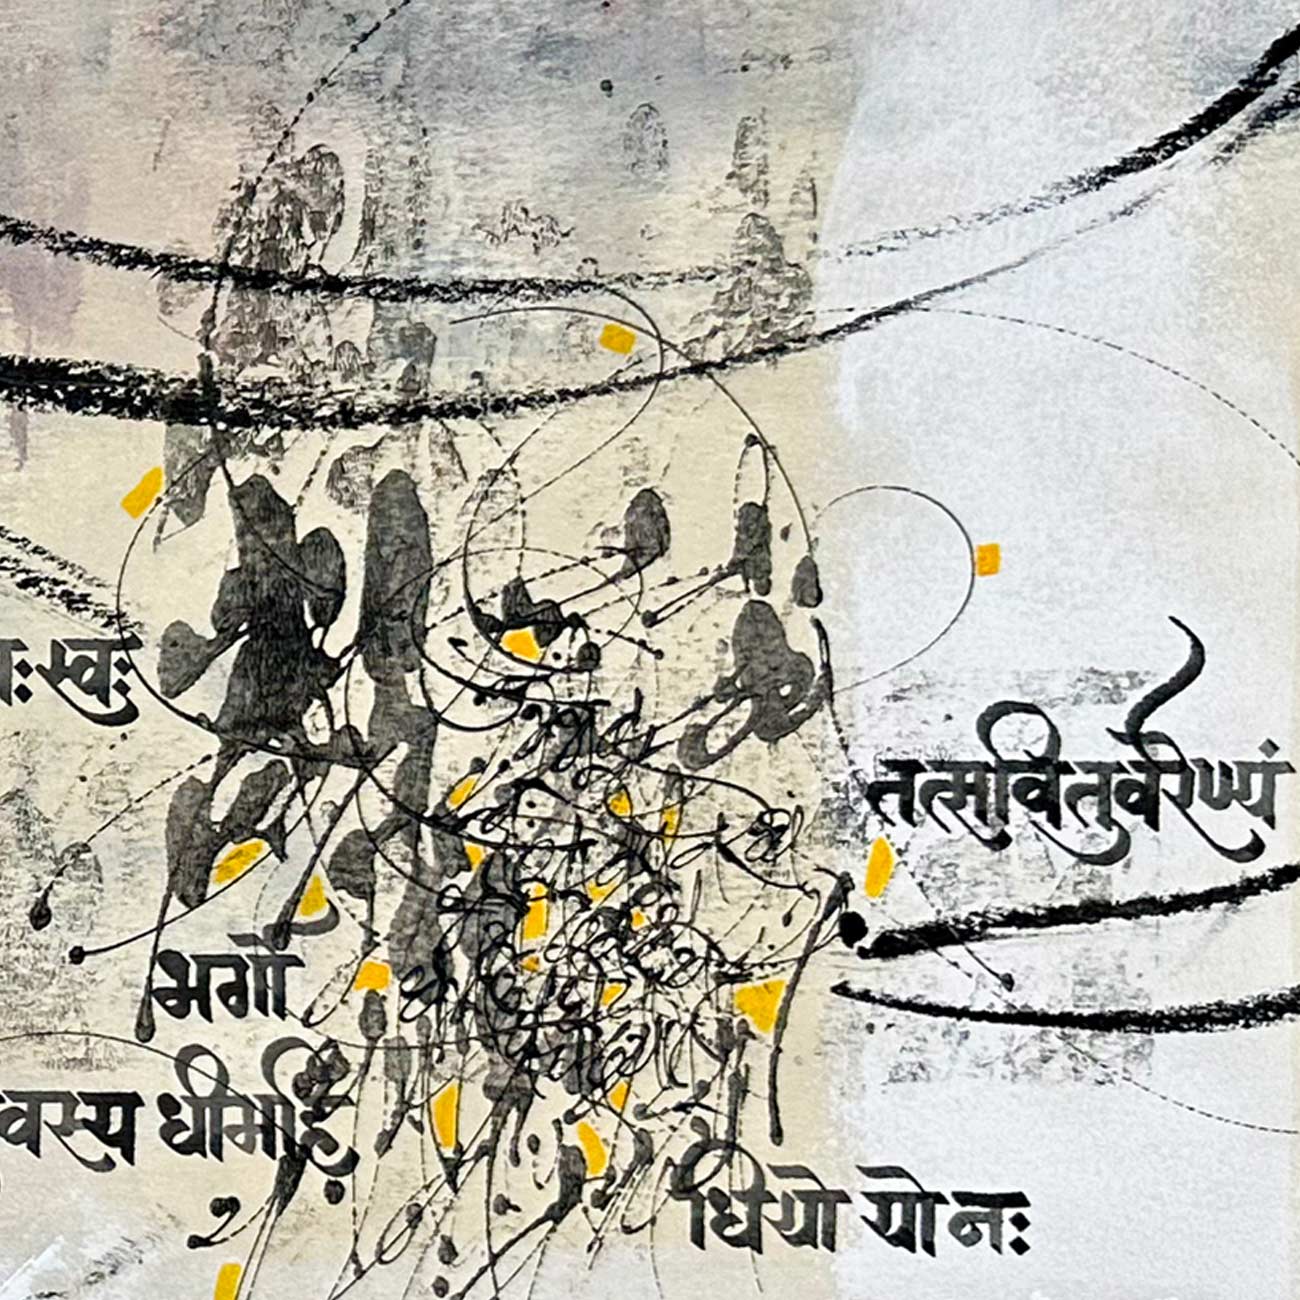 ः स्वः
तत्सवितुर्वरेण्यं
भर्गो
वस्य धीमहि
धियो यो नः